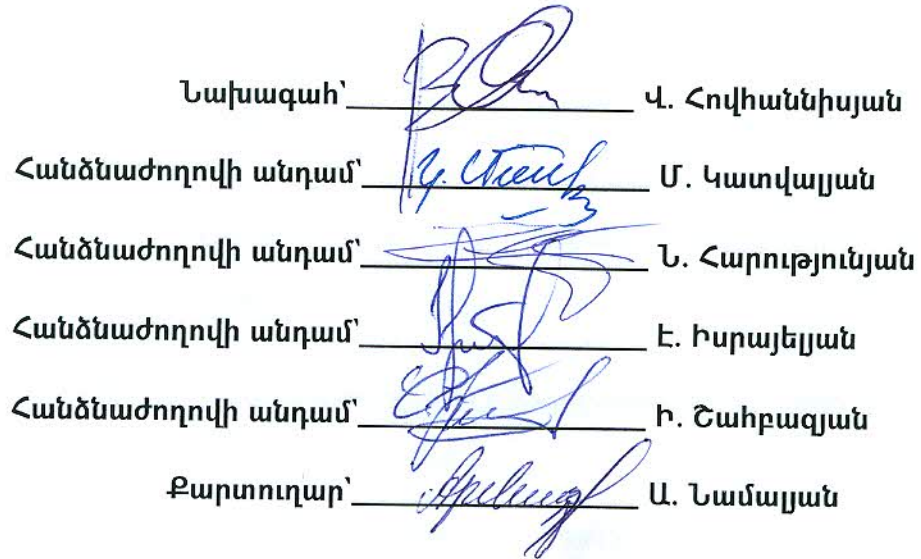 Նախագահ՝ Վ. Հովհաննիսյան
Հանձնաժողովի անդամ՝ Մ. Կատվալյան
Հանձնաժողովի անդամ՝ Ն. Հարությունյան
Հանձնաժողովի անդամ՝ Է. Իսրայելյան
Հանձնաժողովի անդամ՝ Ի. Շահբազյան
Քարտուղար՝ Ա. Նամալյան